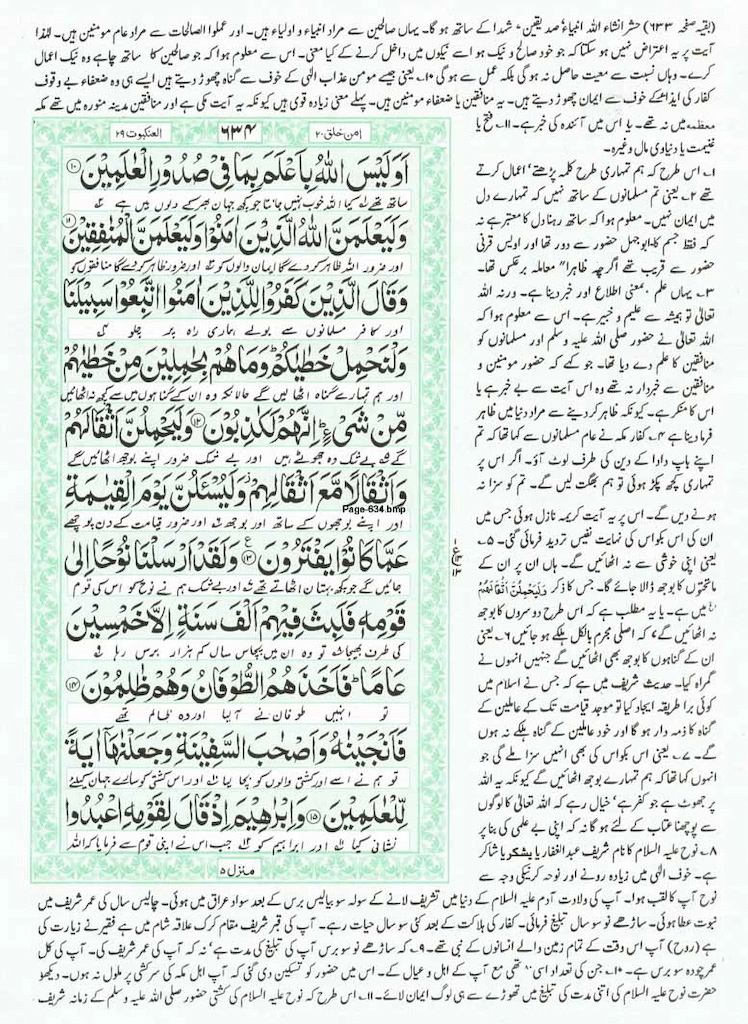 (بقیہ صفحہ ۶۳۳) حشر انشاء اللہ انبیاء، صدیقین، شہدا کے ساتھ ہو گا۔ یہاں صالحین سے مراد انبیاء و اولیاء ہیں۔ اور عملوا الصالحات سے مراد عام مومنین ہیں۔ لہٰذا
آیت پر یہ اعتراض نہیں ہو سکتا کہ جو خود صالح و نیک ہو اسے نیکوں میں داخل کرنے کے کیا معنی۔ اس سے معلوم ہوا کہ جو صالحین کا ساتھ چاہے وہ نیک اعمال
کرے۔ وہاں نسبت سے معیت حاصل نہ ہو گی بلکہ عمل سے ہو گی ۱۰۔ یعنی جیسے مومن عذاب الٰہی کے خوف سے گناہ چھوڑ دیتے ہیں ایسے ہی وہ ضعفاء بے وقوف
کفار کی ایذا کے خوف سے ایمان چھوڑ دیتے ہیں۔ یہ منافقین یا ضعفاء مومنین ہیں۔ پہلے معنی زیادہ قوی ہیں کیونکہ یہ آیت مکی ہے اور منافقین مدینہ منورہ میں تھے مکہ
معظمہ میں نہ تھے۔ یا اس میں آئندہ کی خبر ہے۔ ۱۱۔ فتح یا
غنیمت یا دنیاوی مال وغیرہ۔
۱۔ اس طرح کہ ہم تمہاری طرح کلمہ پڑھتے، اعمال کرتے
تھے ۲۔ یعنی تم مسلمانوں کے ساتھ نہیں کہ تمہارے دل
میں ایمان نہیں۔ معلوم ہوا کہ ساتھ رہنا دل کا معتبر ہے نہ
کہ فقط جسم کا۔ ابوجہل حضور سے دور تھا اور اویس قرنی
حضور سے قریب تھے اگرچہ ظاہرا" معاملہ برعکس تھا۔
۳۔ یہاں علم بمعنی اطلاع اور خبر دینا ہے۔ ورنہ اللہ
تعالیٰ تو ہمیشہ سے علیم و خبیر ہے۔ اس سے معلوم ہوا کہ
اللہ تعالیٰ نے حضور صلی اللہ علیہ وسلم اور مسلمانوں کو
منافقین کا علم دے دیا تھا۔ جو کہے کہ حضور مومنین و
منافقین سے خبردار نہ تھے وہ اس آیت سے بے خبر ہے یا
اس کا منکر ہے۔ کیونکہ ظاہر کر دینے سے مراد دنیا میں ظاہر
فرما دینا ہے ۴۔ کفار مکہ نے عام مسلمانوں سے کہا تھا کہ تم
اپنے باپ دادا کے دین کی طرف لوٹ آؤ۔ اگر اس پر
تمہاری کچھ پکڑ ہوئی تو ہم بھگت لیں گے۔ تم کو سزا نہ
ہونے دیں گے۔ اس پر یہ آیت کریمہ نازل ہوئی جس میں
ان کی اس بکواس کی نہایت نفیس تردید فرمائی گئی۔ ۵۔
یعنی اپنی خوشی سے نہ اٹھائیں گے۔ ہاں ان پر ان کے
ماتحتوں کا بوجھ ڈالا جائے گا۔ جس کا ذکر وَلَيَحْمِلُنَّ اَثْقَالَهُمْ
میں ہے۔ یا یہ مطلب ہے کہ اس طرح دوسروں کا بوجھ
نہ اٹھائیں گے کہ اصلی مجرم بالکل ہلکے ہو جائیں ۶۔ یعنی
ان کے گناہوں کا بوجھ بھی اٹھائیں گے جنہیں انہوں نے
گمراہ کیا۔ حدیث شریف میں ہے کہ جس نے اسلام میں
کوئی برا طریقہ ایجاد کیا تو موجد قیامت تک کے عاملین کے
گناہ کا ذمہ دار ہو گا اور خود عاملین کے گناہ ہلکے نہ ہوں
گے۔ ۷۔ یعنی اس بکواس کی بھی انہیں سزا ملے گی جو
انہوں کہا تھا کہ ہم تمہارے بوجھ اٹھائیں گے کیونکہ یہ اللہ
پر جھوٹ ہے جو کفر ہے، خیال رہے کہ اللہ تعالیٰ کا لوگوں
سے پوچھنا عتاب کے لئے ہو گا نہ کہ اپنی بے علمی کی بنا پر
۸۔ نوح علیہ السلام کا نام شریف عبدالغفار یا یشکر یا شاکر
ہے۔ خوف الٰہی میں زیادہ رونے اور نوحہ کرنیکی وجہ سے
۲۰ امن خلق
۶۳۴
العنکبوت ۲۹
اَوَلَيْسَ اللّٰهُ بِاَعْلَمَ بِمَا فِيْ صُدُوْرِ الْعٰلَمِيْنَ ۱۰
ساتھ تھے کیا اللہ خوب نہیں جانتا جو کچھ جہان بھر کے دلوں میں ہے
وَلَيَعْلَمَنَّ اللّٰهُ الَّذِيْنَ اٰمَنُوْا وَلَيَعْلَمَنَّ الْمُنٰفِقِيْنَ ۱۱
اور ضرور اللہ ظاہر کر دے گا ایمان والوں کو اور ضرور ظاہر کر دے گا منافقوں کو
وَقَالَ الَّذِيْنَ كَفَرُوْا لِلَّذِيْنَ اٰمَنُوا اتَّبِعُوْا سَبِيْلَنَا
اور کافر مسلمانوں سے بولے ہماری راہ پر چلو
وَلْنَحْمِلْ خَطٰيٰكُمْ وَمَا هُمْ بِحٰمِلِيْنَ مِنْ خَطٰيٰهُمْ
اور ہم تمہارے گناہ اٹھا لیں گے حالانکہ وہ ان کے گناہوں میں سے کچھ نہ اٹھائیں
مِّنْ شَيْءٍ اِنَّهُمْ لَكٰذِبُوْنَ ۱۲ وَلَيَحْمِلُنَّ اَثْقَالَهُمْ
گے بے شک وہ جھوٹے ہیں اور بے شک ضرور اپنے بوجھ اٹھائیں گے
وَاَثْقَالًا مَّعَ اَثْقَالِهِمْ وَلَيُسْـَٔلُنَّ يَوْمَ الْقِيٰمَةِ
Page-634.bmp
اور اپنے بوجھوں کے ساتھ اور بوجھ اور ضرور قیامت کے دن پوچھے
عَمَّا كَانُوْا يَفْتَرُوْنَ ۱۳ وَلَقَدْ اَرْسَلْنَا نُوْحًا اِلٰى
جائیں گے جو کچھ بہتان اٹھاتے تھے اور بے شک ہم نے نوح کو اس کی قوم
قَوْمِهٖ فَلَبِثَ فِيْهِمْ اَلْفَ سَنَةٍ اِلَّا خَمْسِيْنَ
کی طرف بھیجا تو وہ ان میں پچاس سال کم ہزار برس رہا
عَامًا فَاَخَذَهُمُ الطُّوْفَانُ وَهُمْ ظٰلِمُوْنَ ۱۴
تو انہیں طوفان نے آ لیا اور وہ ظالم تھے
فَاَنْجَيْنٰهُ وَاَصْحٰبَ السَّفِيْنَةِ وَجَعَلْنٰهَا اٰيَةً
تو ہم نے اسے اور کشتی والوں کو بچا لیا اور اس کشتی کو سارے جہان کیلئے
لِّلْعٰلَمِيْنَ ۱۵ وَاِبْرٰهِيْمَ اِذْ قَالَ لِقَوْمِهِ اعْبُدُوا
نشانی کیا اور ابراہیم کو جب اس نے اپنی قوم سے فرمایا کہ اللہ
منزل ۵
نوح آپ کا لقب ہوا۔ آپ کی ولادت آدم علیہ السلام کے دنیا میں تشریف لانے کے سولہ سو بیالیس برس کے بعد سواد عراق میں ہوئی۔ چالیس سال کی عمر شریف میں
نبوت عطا ہوئی۔ ساڑھے نو سو سال تبلیغ فرمائی۔ کفار کی ہلاکت کے بعد کئی سو سال حیات رہے۔ آپ کی قبر شریف مقام کرک علاقہ شام میں ہے فقیر نے زیارت کی
ہے (روح) آپ اس وقت کے تمام زمین والے انسانوں کے نبی تھے۔ ۹۔ کہ ساڑھے نو سو برس آپ کی تبلیغ کی مدت ہے، نہ کہ آپ کی عمر شریف کی۔ آپ کی کل
عمر چودہ سو برس ہے۔ ۱۰۔ جن کی تعداد اسی تھی مع آپ کے اہل و عیال کے۔ اس میں حضور کو تسکین دی گئی کہ آپ اہل مکہ کی سرکشی پر ملول نہ ہوں۔ دیکھو
حضرت نوح علیہ السلام کی اتنی مدت کی تبلیغ میں تھوڑے سے ہی لوگ ایمان لائے۔ ۱۱۔ اس طرح کہ نوح علیہ السلام کی کشتی حضور صلی اللہ علیہ وسلم کے زمانہ شریف